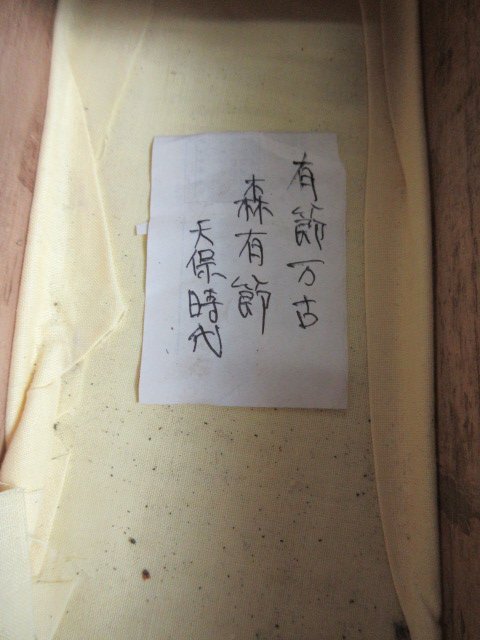 有節万古
森有節
天保時代